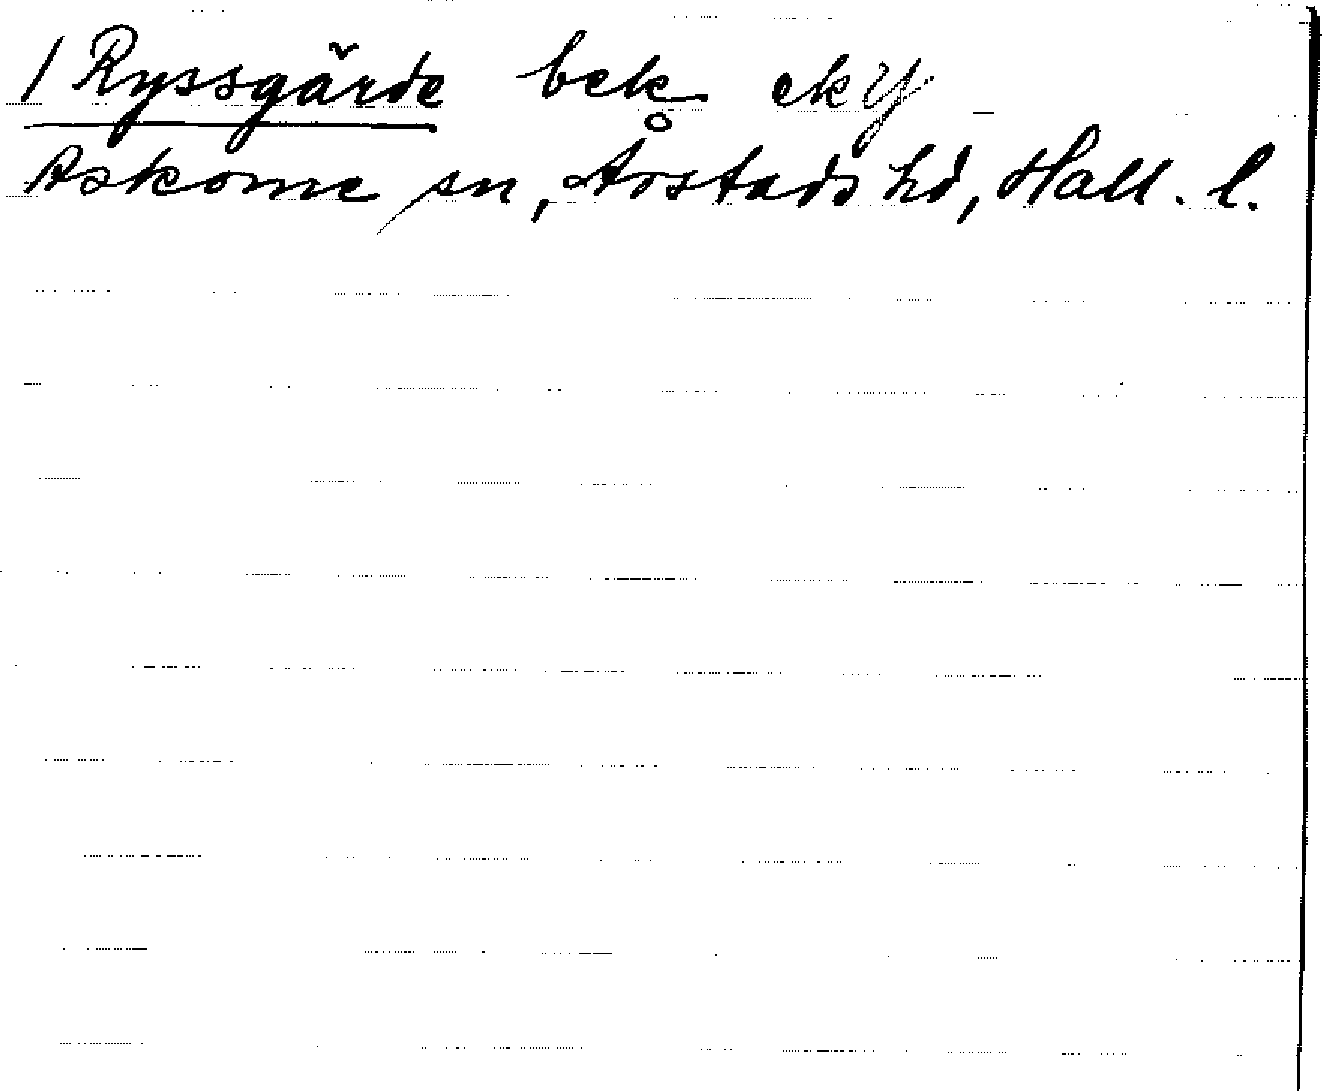 / Ryssgärde bek ek Y
Askome sn, Årstads hd, Hall. l.